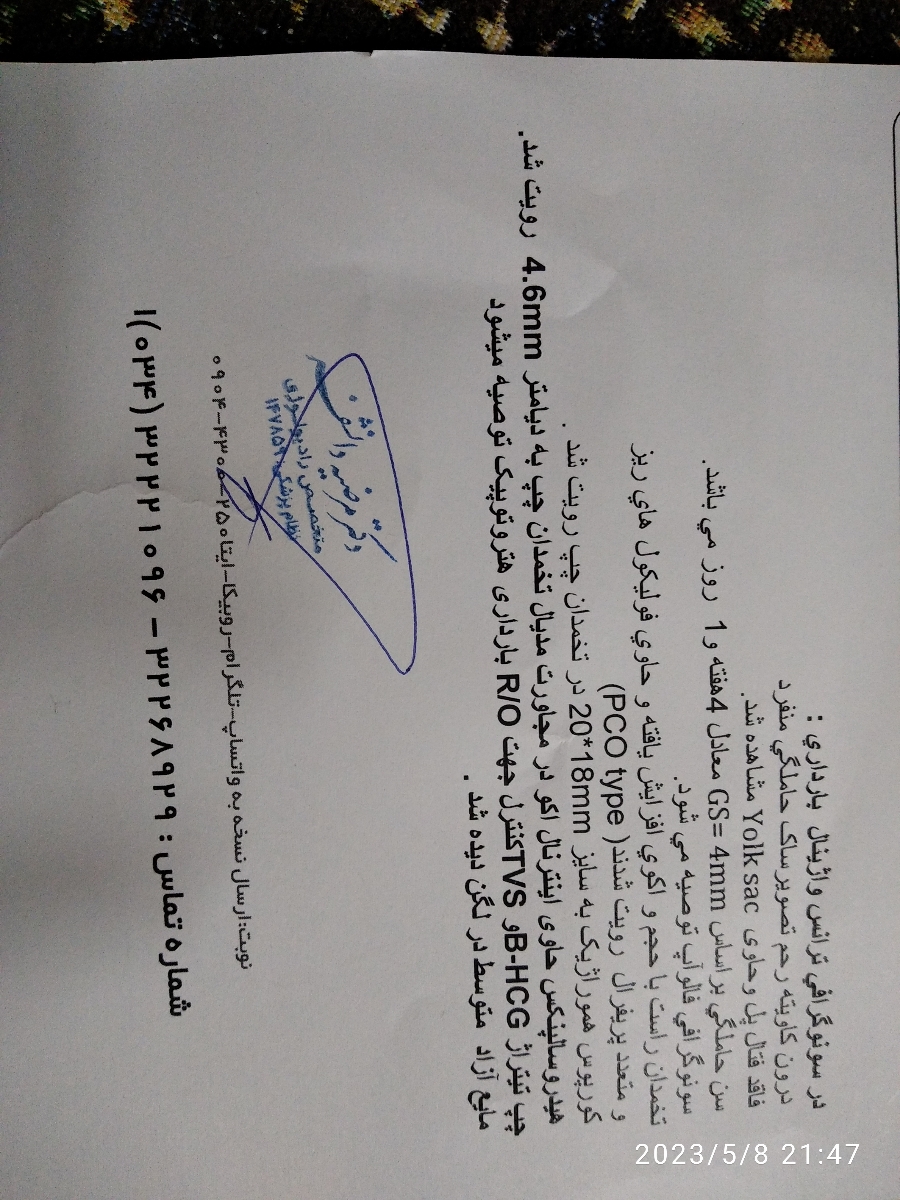 در سونوگرافي ترانس واژينال بارداري :
درون کاويته رحم تصوير ساک حاملگي منفرد
فاقد فتال پل وحاوی Yolk sac مشاهده شد.
سن حاملگي براساس GS= 4mm معادل 4هفته و 1 روز مي باشد.
سونوگرافي فالوآپ توصيه مي شود.
تخمدان راست با حجم و اکوي افزايش يافته و حاوي فوليکول هاي ريز
و متعدد پريفرال رويت شدند( PCO type)
کورپوس هموراژیک به سایز 20*18mm در تخمدان چپ رویت شد .
هیدروسالپنکس حاوی اینترنال اکو در مجاورت مدیال تخمدان چپ به دیامتر 4.6mm رویت شد.
چپ تیتراژ B-HCGو TVSکنترل جهت R/O بارداری هتروتوپیک توصیه میشود
مایع آزاد متوسط در لگن دیده شد .
دکتر مرضیه دانش
متخصص رادیولوژی
نظام پزشکی
نوبت:ارسال نسخه به واتساپ-تلگرام-روبیکا-ایتا
شماره تماس : ۳۲۲۶۸۹۲۹ – ۳۲۲۲۱۰۹۶ (۰۳۴)
2023/5/8 21:47